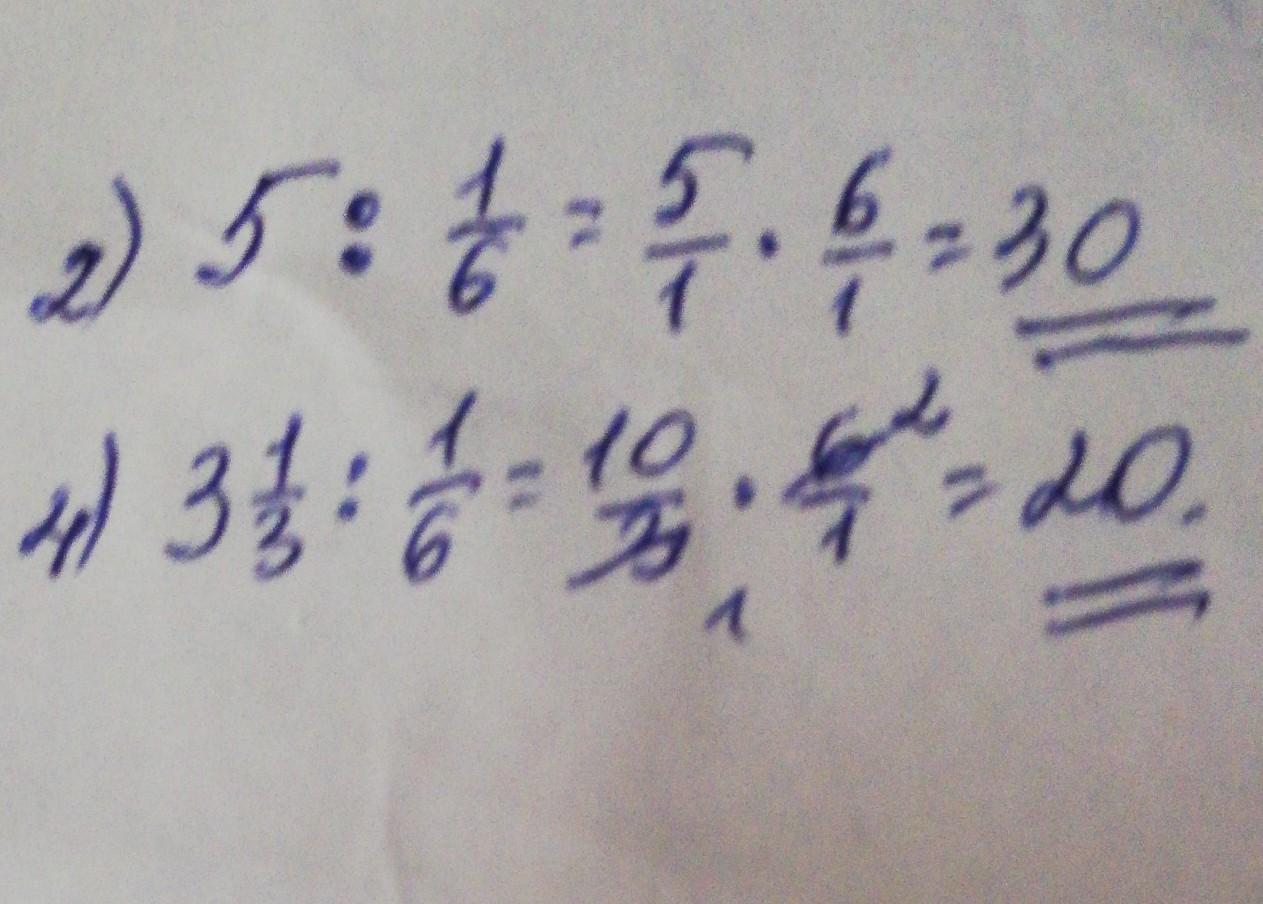 2) 5 : 1/6 = 5/1 · 6/1 = 30
4) 3 1/3 : 1/6 = 10/3 1 · 6/1 2 = 20.